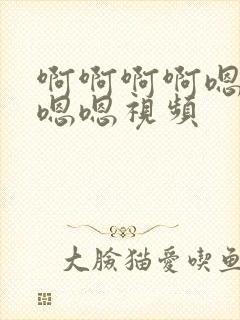 啊啊啊啊嗯
嗯嗯視頻
大臉猫愛喫鱼